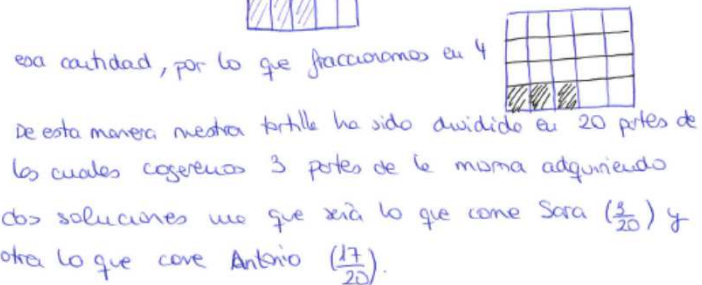 esa cantidad, por lo que fraccionamos en 4
De esta manera nuestra tortilla ha sido dividida en 20 partes de
los cuales cogeremos 3 partes de la misma adquiriendo
dos soluciones una que sería lo que come Sara (3/20) y
otra lo que come Antonio (17/20).